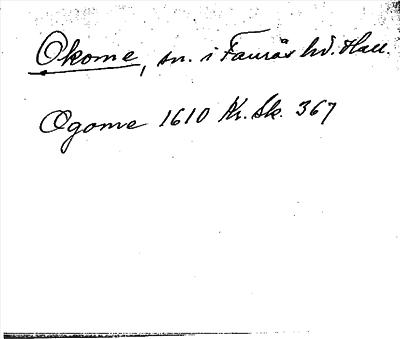 Okome, sn. i Faurås hd. Hall.
Ogome 1610 Kr. Sk. 367